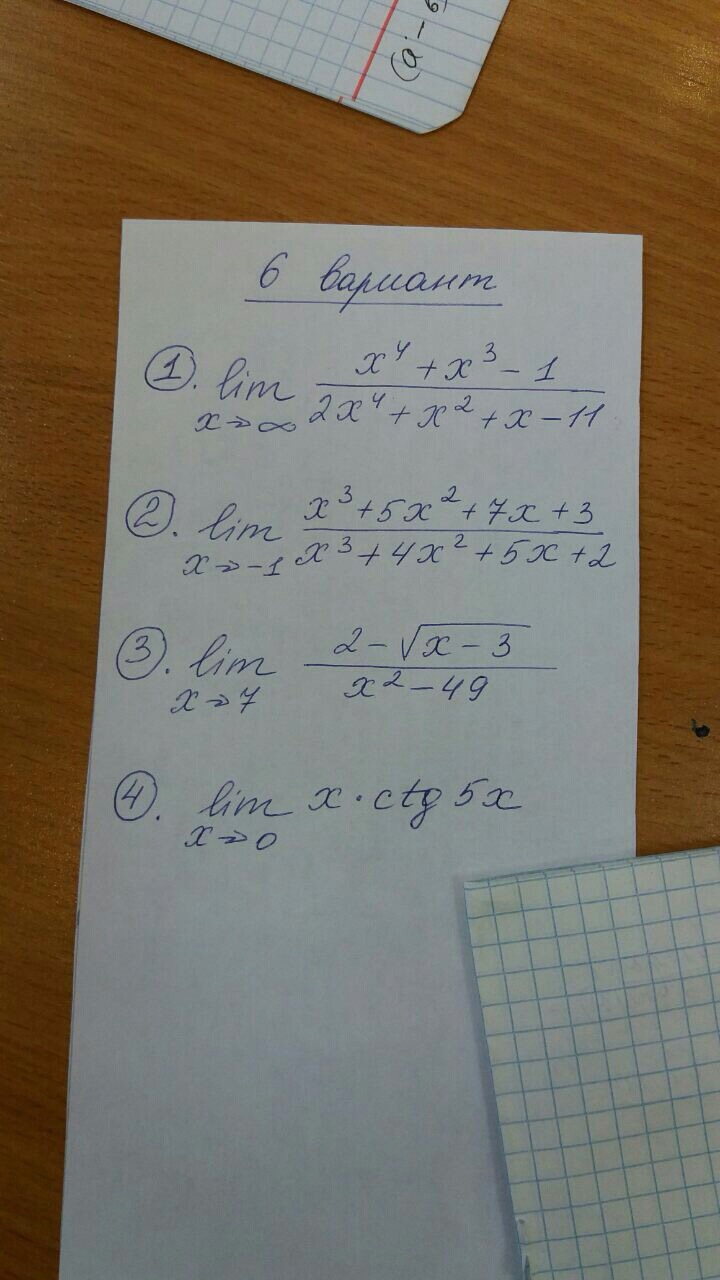 (a - 6
6 вариант
①. lim x→∞ (x⁴ + x³ - 1) / (2x⁴ + x² + x - 11)
②. lim x→-1 (x³ + 5x² + 7x + 3) / (x³ + 4x² + 5x + 2)
③. lim x→7 (2 - √(x - 3)) / (x² - 49)
④. lim x→0 x · ctg 5x